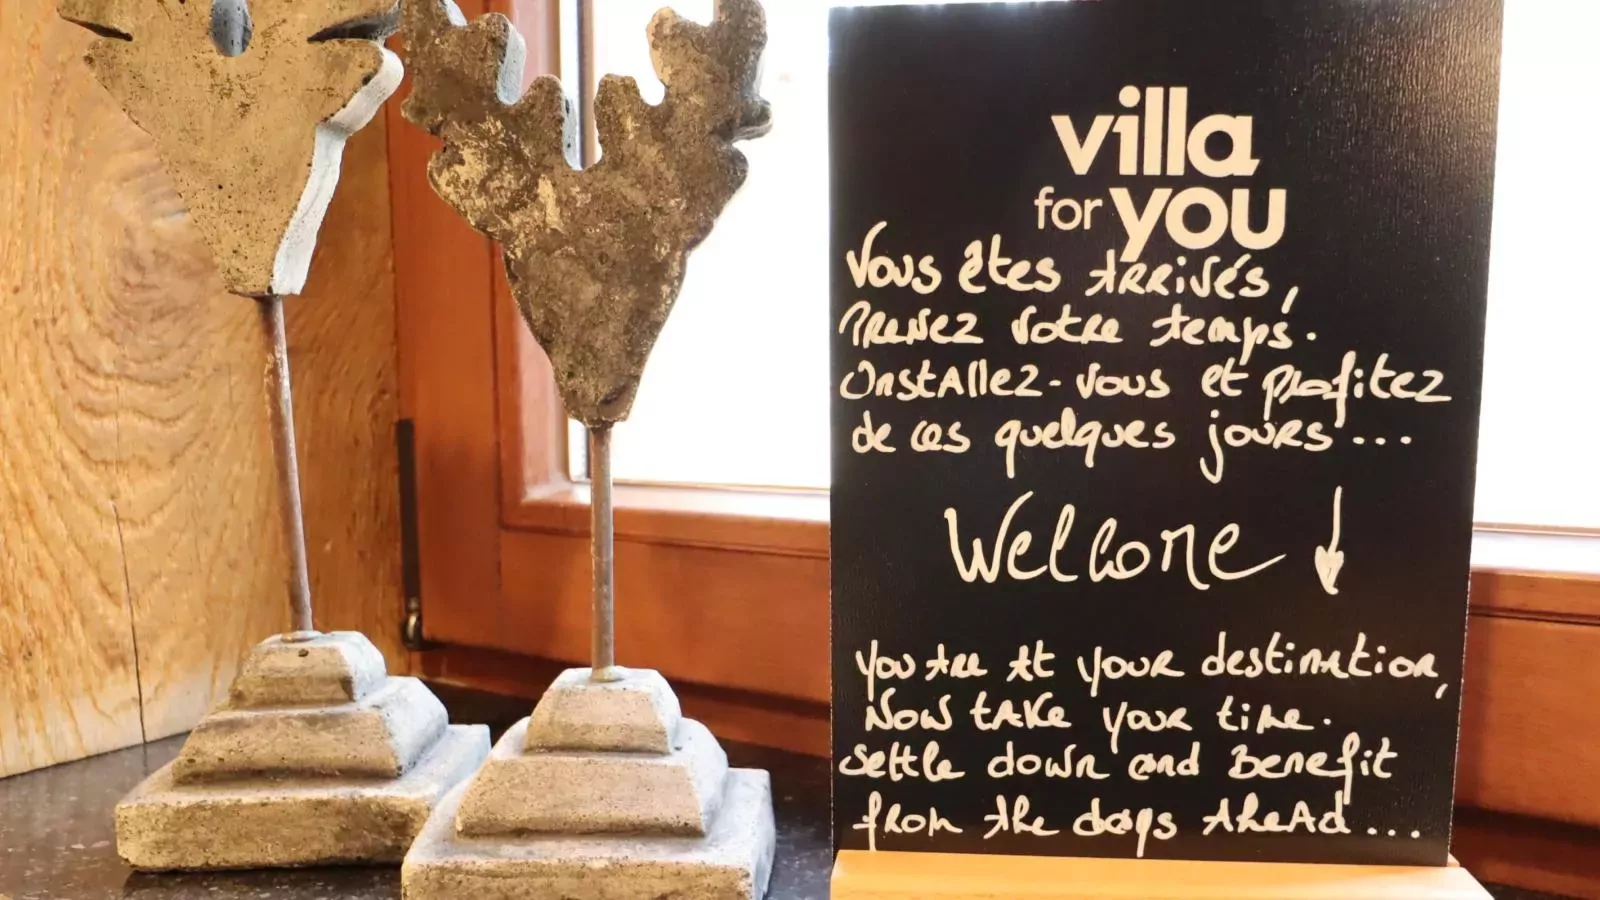 villa
for you
Vous êtes arrivés,
Prenez votre temps.
Installez-vous et profitez
de ces quelques jours...
Welcome
You are at your destination,
Now take your time.
settle down and Benefit
from the days ahead...